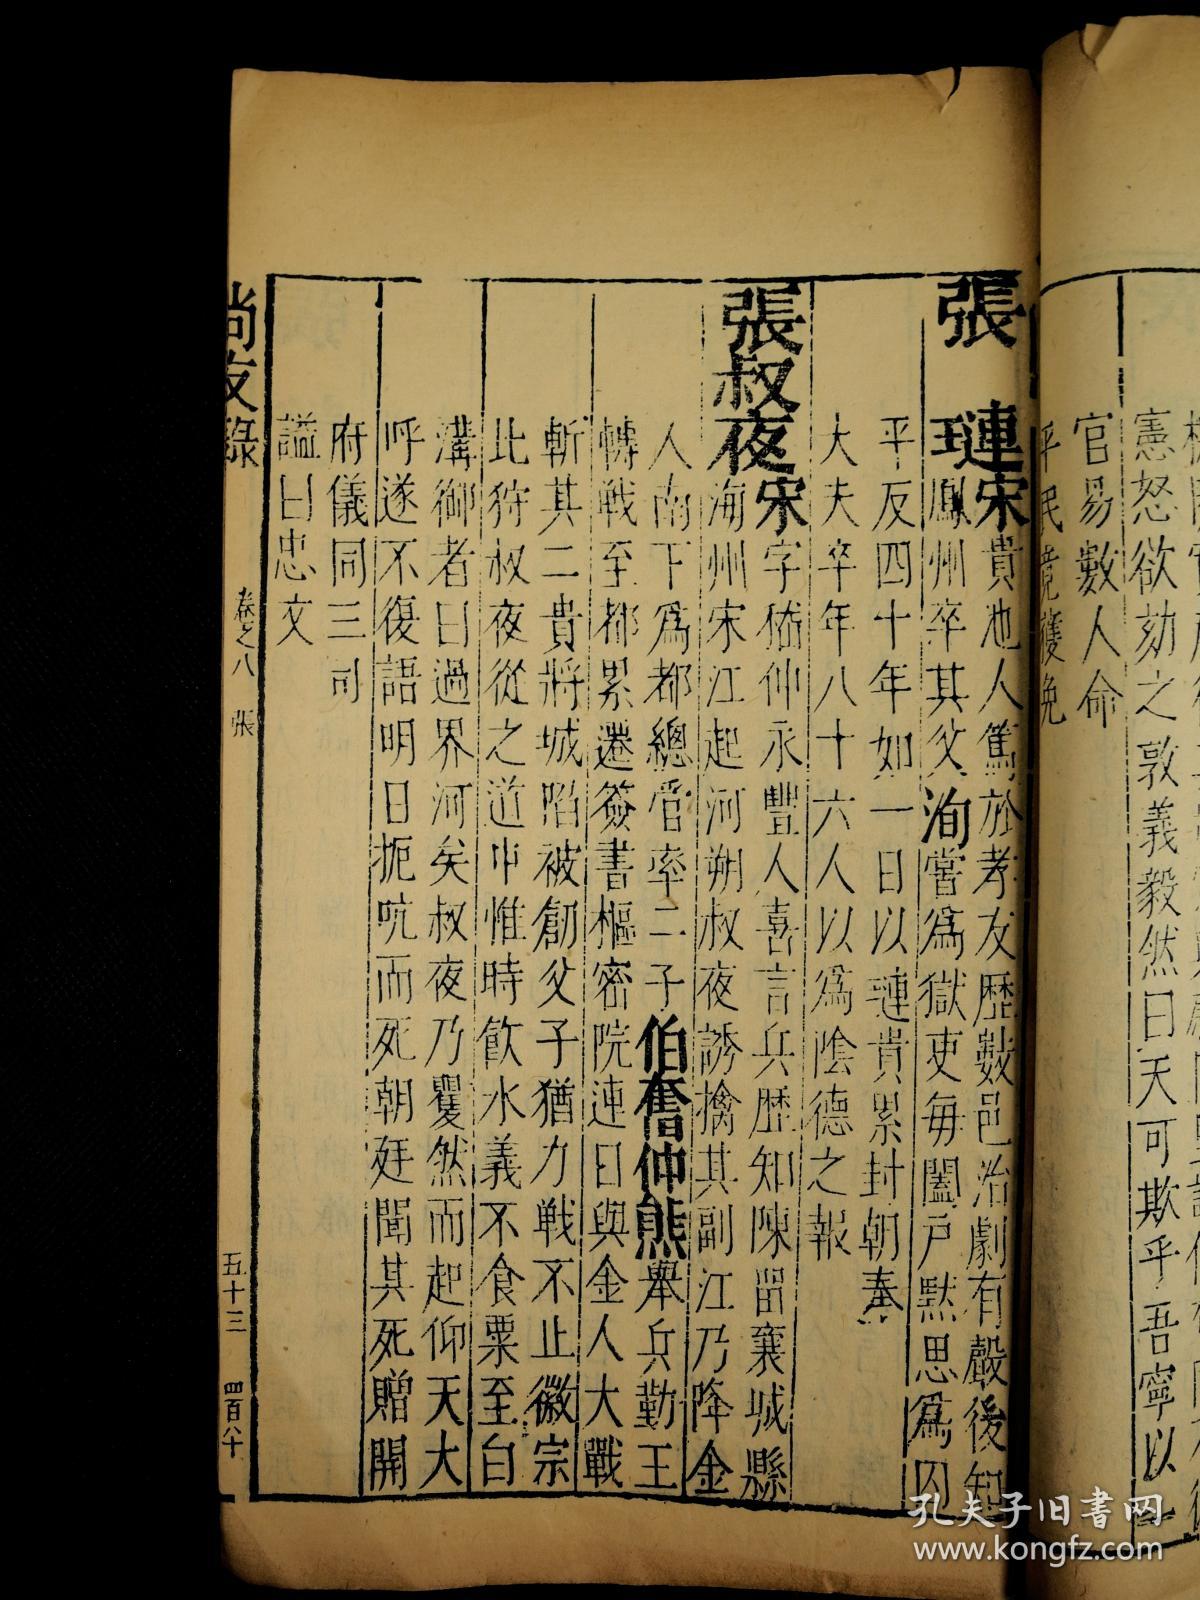 憲怒欲劾之敦義毅然曰天可欺乎吾寧以上
官易數人命
平民竟獲免
張 璉宋貴池人篤於孝友歷數邑治劇有聲後知
鳳州卒其父洵嘗為獄吏每闔戸默思為囚
平反四十年如一日以璉貴累封朝奉
大夫卒年八十六人以為陰德之報
張叔夜宋字嵇仲永豐人喜言兵歷知陳留襄城縣
海州宋江起河朔叔夜誘擒其副江乃降金
人南下為都總管率二子伯奮仲熊舉兵勤王
轉戰至都累遷簽書樞密院連日與金人大戰
斬其二貴將城陷被創父子猶力戰不止徽宗
北狩叔夜從之道中惟時飲水義不食粟至白
溝御者曰過界河矣叔夜乃矍然而起仰天大
呼遂不復語明日扼吭而死朝廷聞其死贈開
府儀同三司
諡曰忠文
尚友錄 卷之八 張 五十三 四百八十
孔夫子旧书网
www.kongfz.com